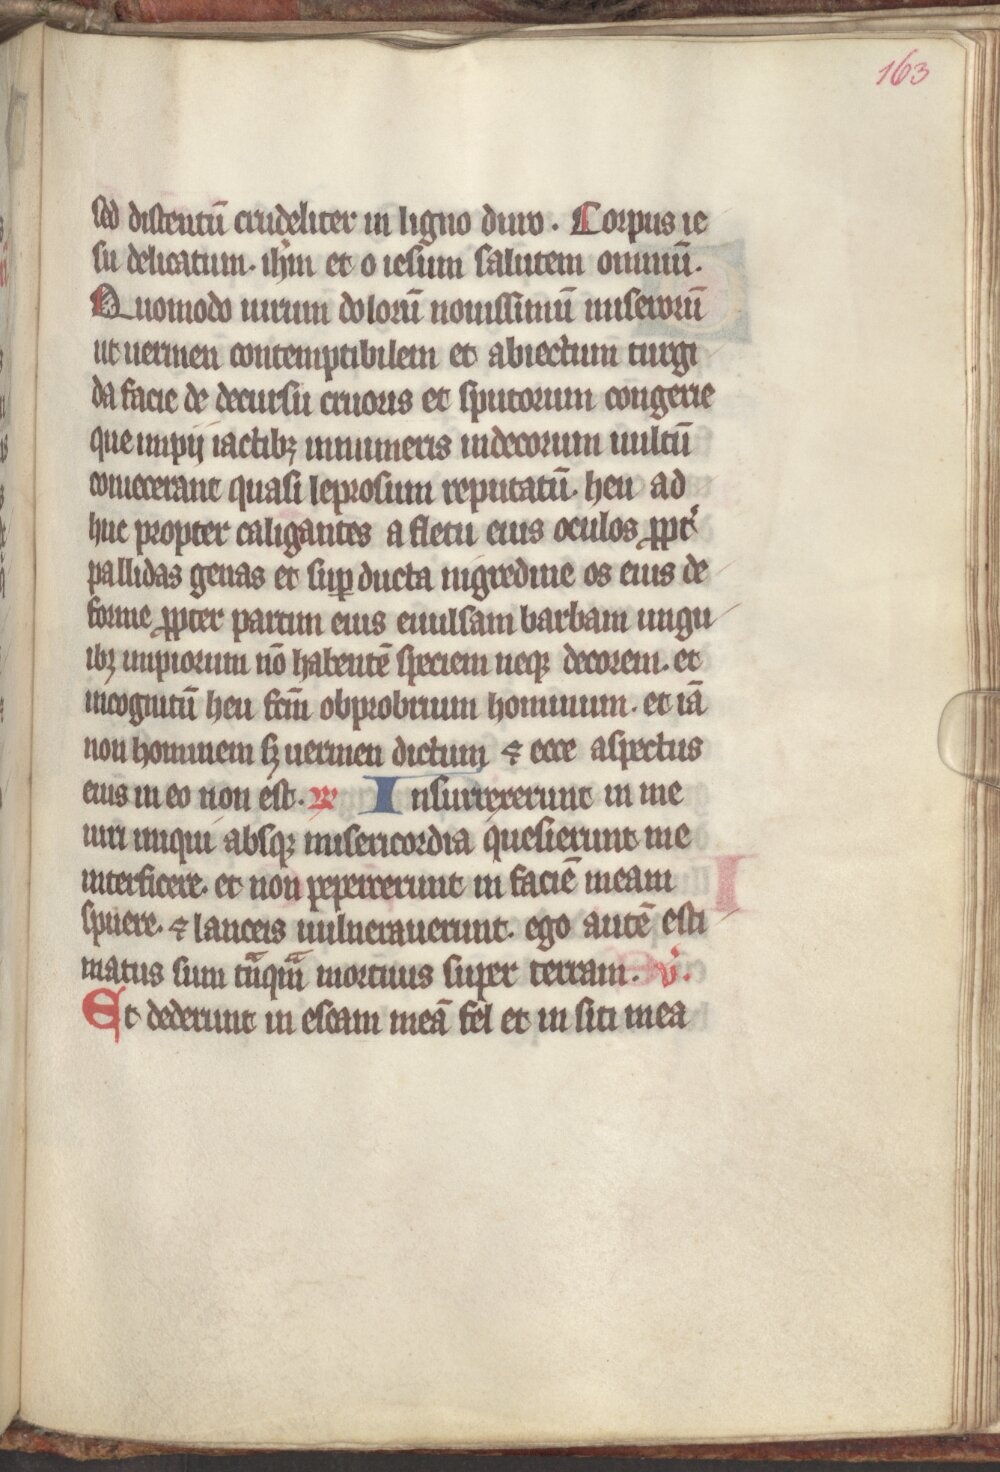 163
sed distentū crudeliter in ligno duro. Corpus ie
su delicatum. ihm et o iesum salutem omniū.
Quomodo uirum dolorū nouissimū miserorū
ut uermen contemptibilem et abiectum turgi
da facie de decursu cruoris et sputorum congerie
que impij iactibꝫ innumeris indecorum uultū
coniecerant quasi leprosum reputatū. heu ad
huc propter caligantes a fletu eius oculos ꝓpt
pallidas genas et suꝑducta nigredine os eius de
forme ꝓpter partim eius euulsam barbam ungu
ibꝫ impiorum nō habentē speciem neqꝫ decorem. et
incognitū heu fcm̄ obprobrium hominum. et iā
non hominem sꝫ uermen dictum ⁊ ecce aspectus
eius in eo non est. ꝶ Insurrexerunt in me
uiri iniqui absqꝫ misericordia quesierunt me
interficere. et non pepercerunt in faciē meam
spuere. ⁊ lanceis uulnerauerunt. ego autē esti
matus sum tāqm̄ mortuus super terram. v̄.
Et dederunt in escam meā fel et in siti mea